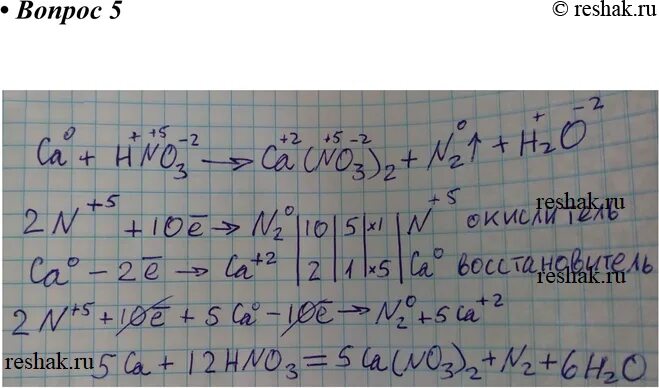 • Вопрос 5 © reshak.ru
Ca⁰ + H⁺N⁺⁵O₃⁻² → Ca⁺²(N⁺⁵O₃⁻²)₂ + N₂⁰↑ + H₂⁺O⁻²
reshak.ru
2N⁺⁵ + 10ē → N₂⁰ | 10 | 5 | ×1 | N⁺⁵ окислитель
Ca⁰ − 2ē → Ca⁺² | 2 | 1 | ×5 | Ca⁰ восстановитель
reshak.ru
2N⁺⁵ + 10ē + 5Ca⁰ − 10ē → N₂⁰ + 5Ca⁺²
reshak.ru
5Ca + 12HNO₃ = 5Ca(NO₃)₂ + N₂ + 6H₂O